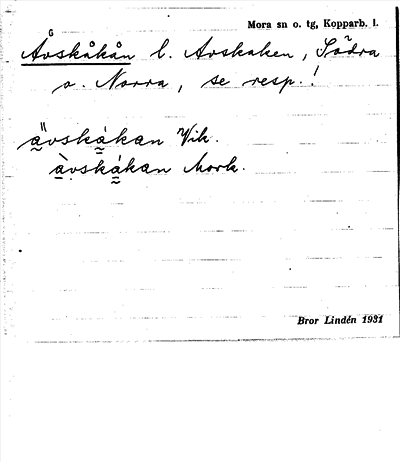 Mora sn o. tg, Kopparb. l.
G
Åvskåkån l. Avskaken, Södra
o. Norra, se resp.!
ä̰vskákan Vik.
à̱vskákan Mork.
Bror Lindén 1931